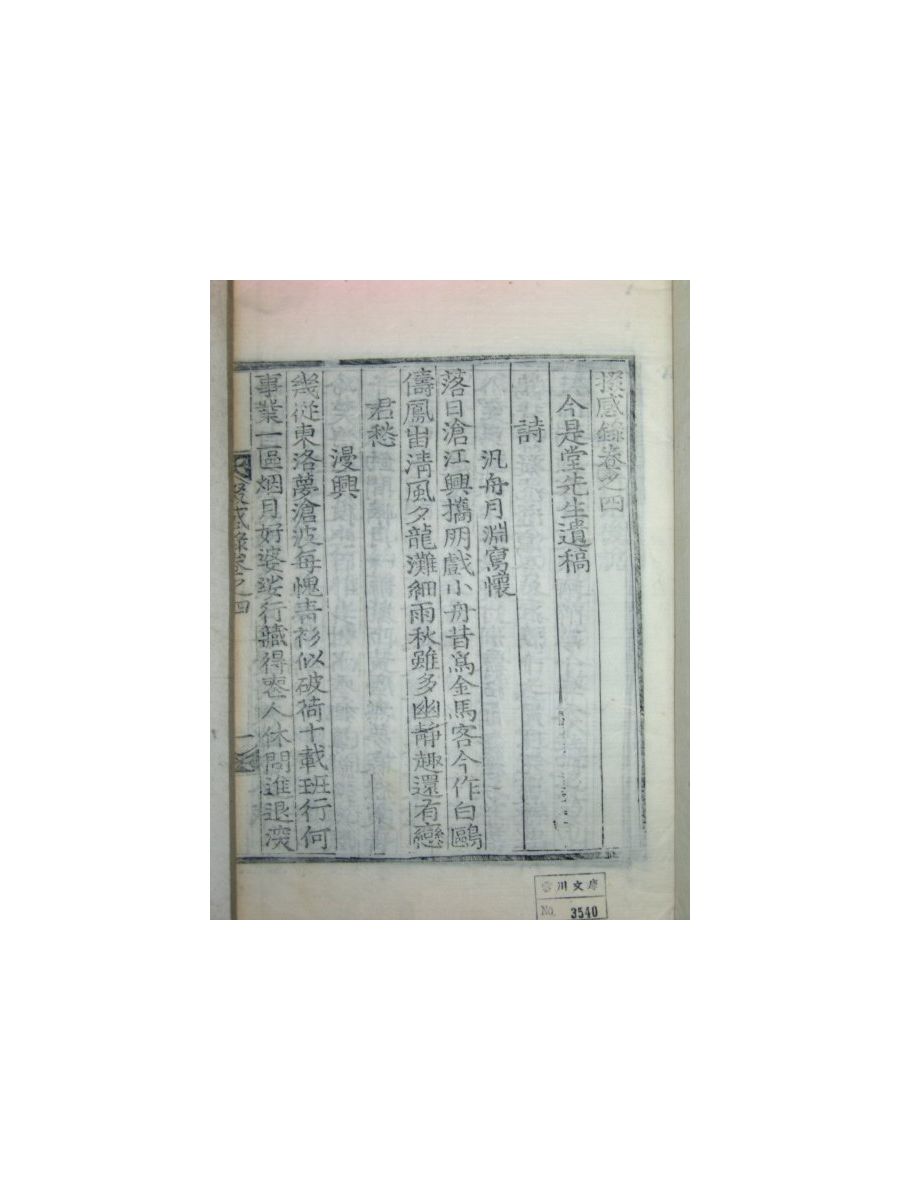 感錄卷之四
今是堂先生遺稿
詩
汎舟月淵寫懷
落日滄江興攜朋戲小舟昔爲金馬客今作白鷗
儔鳳岀清風夕龍灘細雨秋雖多幽靜趣還有戀
君愁
漫興
幾從東洛夢滄波每愧靑衫似破荷十載班行何
事業一區烟月好婆娑行藏得喪人休問進退深
感錄卷之四
一
川文庫
No. 3540